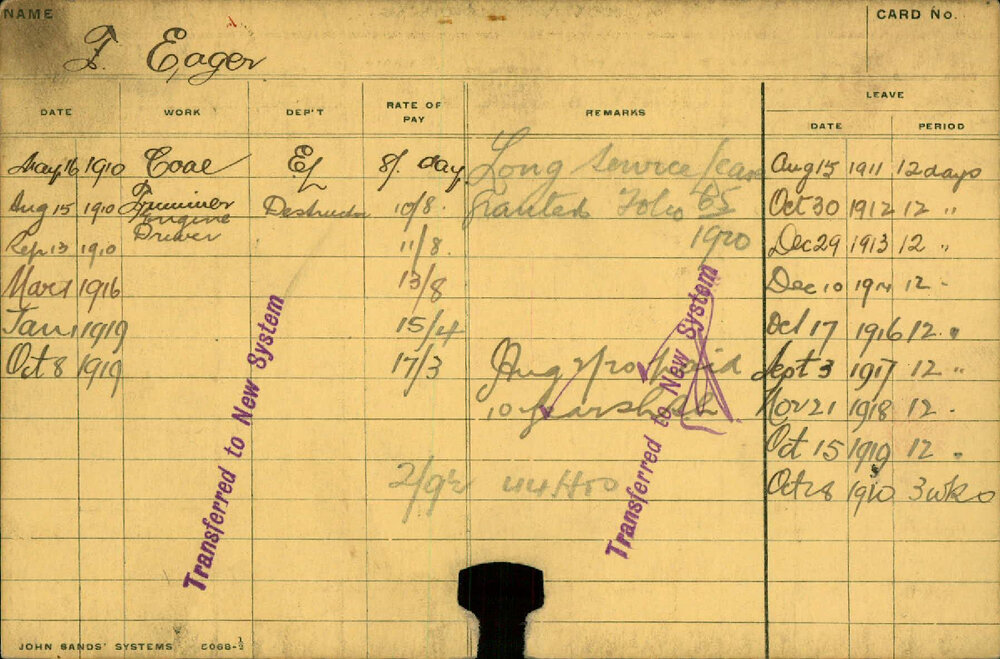 NAME
CARD NO.
F. Eager
DATE WORK DEP'T RATE OF PAY REMARKS LEAVE
DATE PERIOD
May 16 1910 Coal El 8/. day Long Service Leave Aug 15 1911 12 days
Aug 15 1910 Trimmer Destructor 10/8. Granted Folio 65 Oct 30 1912 12 "
Engine
Sep 13 1910 Driver 11/8. 1920 Dec 29 1913 12 "
Mar 1 1916 13/8 Dec 10 1914 12 "
Jan 1 1919 15/4 Oct 17 1916 12 "
Oct 8 1919 17/3 Aug 2/20 paid Sept 3 1917 12 "
10 years Nov 21 1918 12 "
Oct 15 1919 12 "
2/9½ 44 Hrs Oct 28 1920 3 wks
Transferred to New System
Transferred to New System
JOHN SANDS' SYSTEMS 5068-½